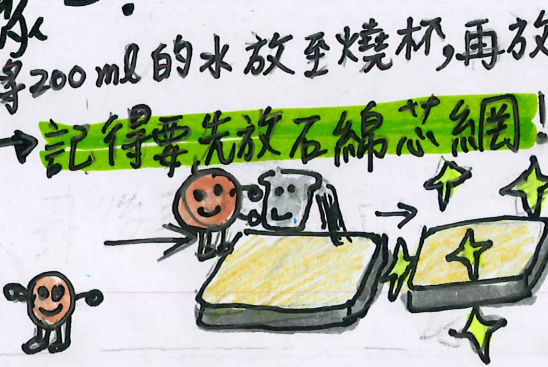 將200ml的水放至燒杯,再放
→記得要先放石綿芯網!